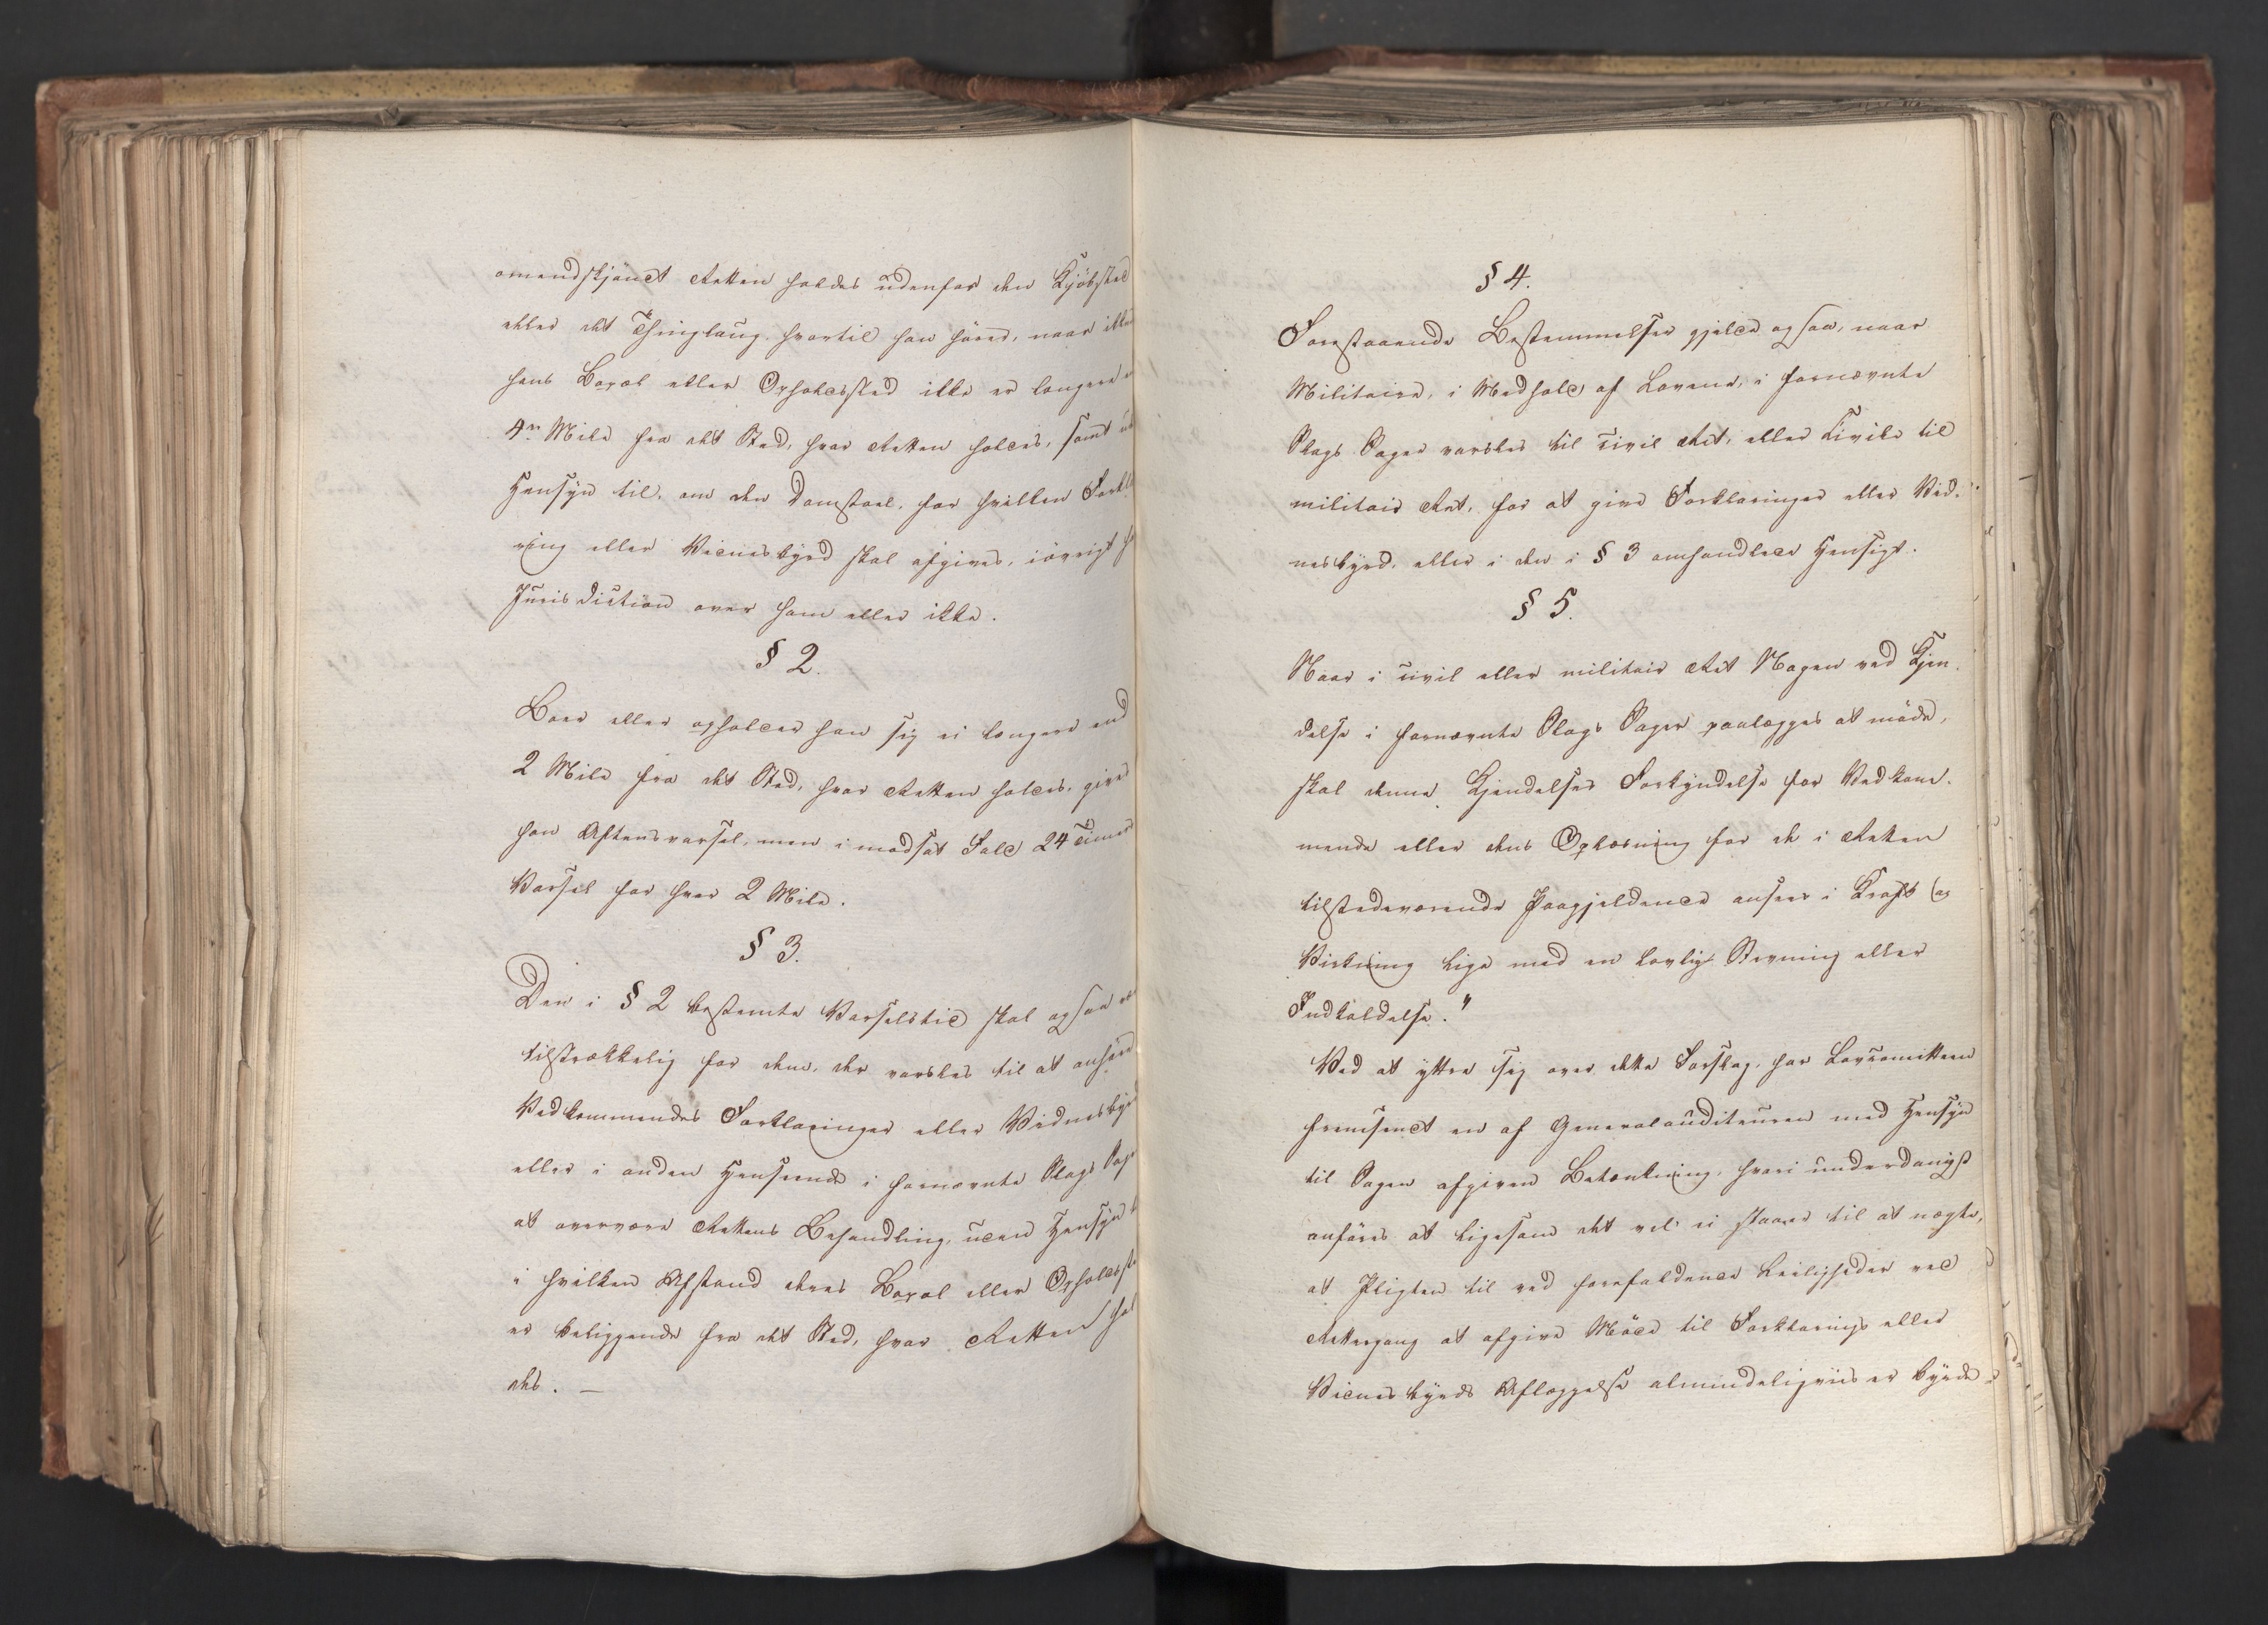 omendskjøndt Retten holdes udenfor den Kjøbstad
eller det Thinglaug hvortil han hører, naar ikke
hans Bopæl eller Opholdssted ikke er længere
4re Mile fra det Sted, hvor Retten holdes, samt
Hensyn til, om den Domstol, for hvilken Forkla
ring eller Vidnesbyrd skal afgives, iøvrigt
Jurisdiction over ham eller ikke.
§ 2.
Boer eller opholder han sig ei længere end
2 Mile fra det Sted, hvor Retten holdes, gives
han Aftensvarsel, men i modsat Fald 24 Timers
Varsel for hver 2 Mile.
§ 3.
Den i § 2 bestemte Varselstid skal ogsaa
tilstrækkelig for dem, der varsles til at anhøre
Vedkommendes Forklaringer eller Vidnesbyrd
eller i anden Henseende i fornævnte Slags Sager
at overvære Rettens Behandling, uden Hensyn
i hvilken Afstand deres Bopæl eller Opholdssted
er beliggende fra det Sted, hvor Retten hol
des. —
§ 4.
Forestaaende Bestemmelser gjelde ogsaa, naar
Militaire, i Medhold af Lovene, i fornævnte
Slags Sager varsles til civil Ret, eller Civile til
militair Ret, for at give Forklaringer eller Vid-
nesbyrd, eller i den i § 3 omhandlede Hensigt.
§ 5.
Naar i civil eller militair Ret Nogen ved Kjen-
delse i fornævnte Slags Sager paalægges at møde,
skal denne Kjendelses Forkyndelse for Vedkom-
mende eller dens Oplæsning for de i Retten
tilstedeværende Paagjeldende ansees i Kraft og
Virkning lige med en lovlig Stevning eller
Indkaldelse."
Ved at yttre sig over dette Forslag, har Lovcomitteen
fremsendt en af Generalauditeuren med Hensyn
til Sagen afgiven Betænkning, hvori underdanigst
anføres at ligesom det vel ei staaer til at nægte,
at Pligten til ved forefaldende Leiligheder ved
Rettergang at afgive Møde til Forklarings eller
Vidnesbyrds Aflæggelse almindeligviis er byrde-